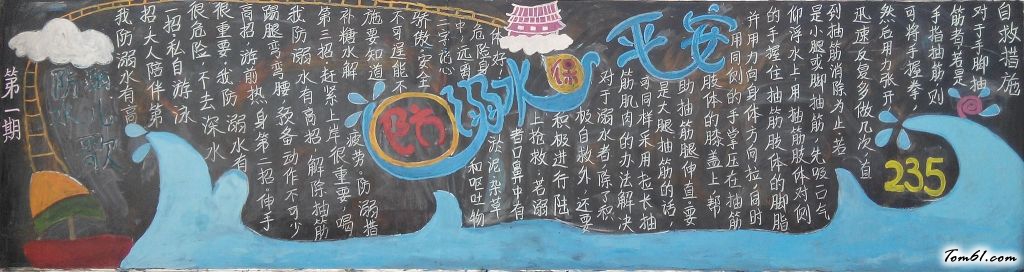 自救措施
对于手脚抽
筋者，若是
手指抽筋，则
可将手握拳，
然后用力张开，
迅速反复多做几次，直
到抽筋消除为止；若
是小腿或脚抽筋，先吸一口气
仰浮水上，用抽筋肢体对侧
的手握住抽筋肢体的脚脂
并用力向身体方向拉，百时
用同侧的手掌压在抽筋
肢体的膝盖上，帮
助抽筋腿伸直；要
是大腿抽筋的话，
可同样采用拉长抽
筋肌肉的办法解决
对于溺水者，除了积
极自救外，还要
积极进行陆
上抢救，若溺
者口鼻中有
淤泥杂草
和呕吐物
平安
保
防溺水
235
疲劳。防溺措
施要知道
补糖水解
第三招赶紧上岸很重要，喝
我防溺水有高招，解除抽筋
踢腿弯弯腰，预备动作不可少
高招，游前热身第二招，伸手
很重要，我防溺水有
很危险，不去深水
一招私自游泳
招大人陪伴第
我防溺水有高
防溺水歌
第一期
Tom61.com